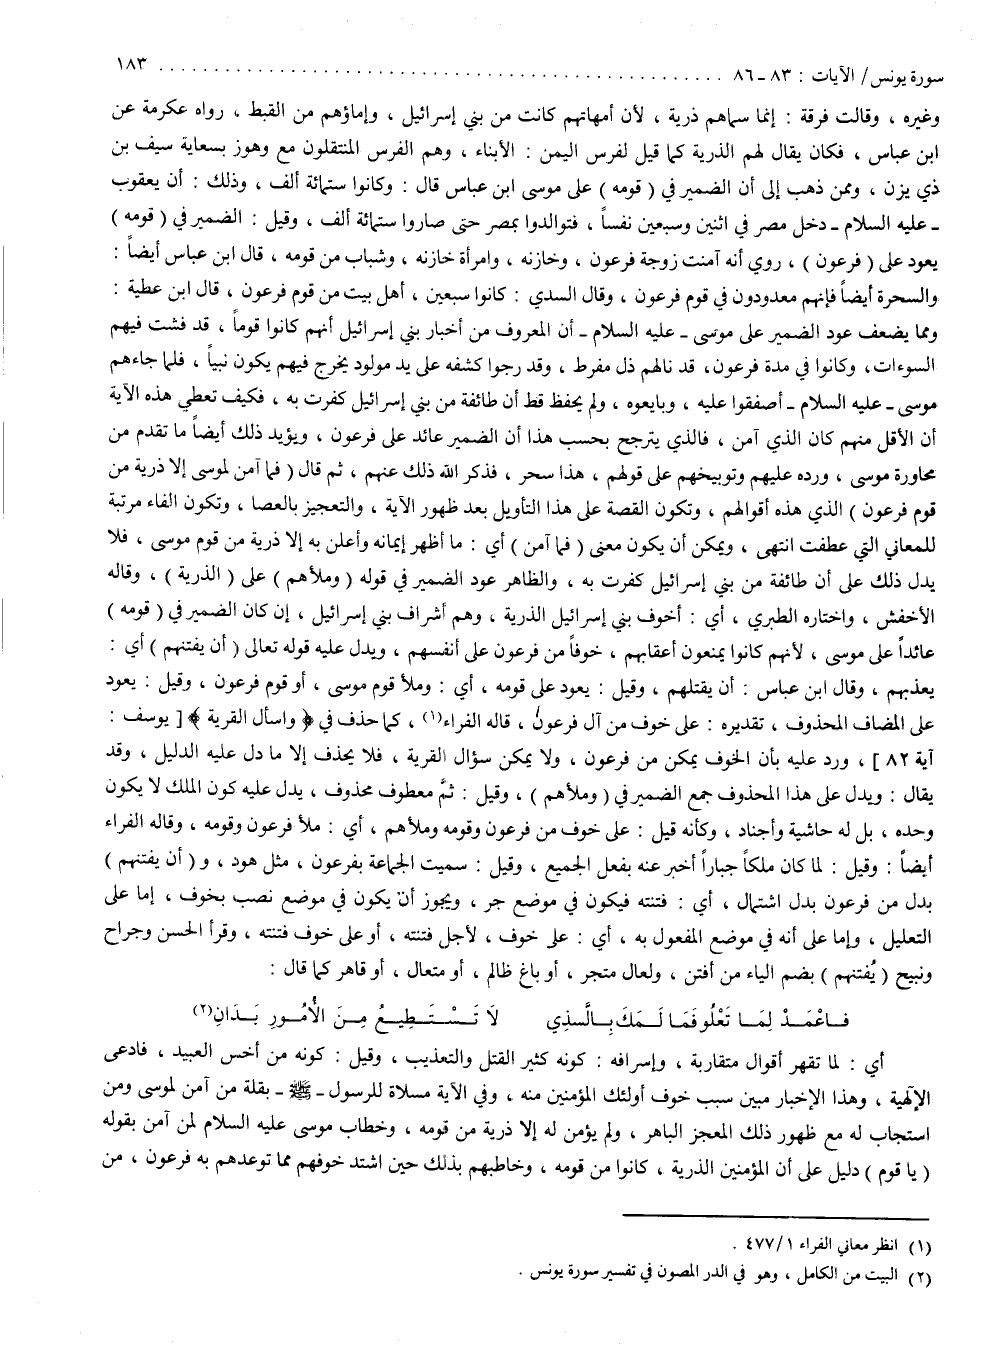 سورة يونس/ الآيات : ٨٣ ـ ٨٦ ........................................ ١٨٣
وغيره ، وقالت فرقة : إنما سماهم ذرية ، لأن أمهاتهم كانت من بني إسرائيل ، وإماؤهم من القبط ، رواه عكرمة عن
ابن عباس ، فكان يقال لهم الذرية كما قيل لفرس اليمن : الأبناء ، وهم الفرس المنتقلون مع وهوز بسعاية سيف بن
ذي يزن ، وممن ذهب إلى أن الضمير في ( قومه ) على موسى ابن عباس قال : وكانوا ستمائة ألف ، وذلك : أن يعقوب
ـ عليه السلام ـ دخل مصر في اثنين وسبعين نفساً ، فتوالدوا بمصر حتى صاروا ستمائة ألف ، وقيل : الضمير في ( قومه )
يعود على ( فرعون ) ، روي أنه آمنت زوجة فرعون ، وخازنه ، وامرأة خازنه ، وشباب من قومه ، قال ابن عباس أيضاً :
والسحرة أيضاً فإنهم معدودون في قوم فرعون ، وقال السدي : كانوا سبعين ، أهل بيت من قوم فرعون ، قال ابن عطية :
ومما يضعف عود الضمير على موسى ـ عليه السلام ـ أن المعروف من أخبار بني إسرائيل أنهم كانوا قوماً ، قد فشت فيهم
السوءات ، وكانوا في مدة فرعون ، قد نالهم ذل مفرط ، وقد رجوا كشفه على يد مولود يخرج فيهم يكون نبياً ، فلما جاءهم
موسى ـ عليه السلام ـ أصفقوا عليه ، وبايعوه ، ولم يحفظ قط أن طائفة من بني إسرائيل كفرت به ، فكيف تعطي هذه الآية
أن الأقل منهم كان الذي آمن ، فالذي يترجح بحسب هذا أن الضمير عائد على فرعون ، ويؤيد ذلك أيضاً ما تقدم من
محاورة موسى ، ورده عليهم وتوبيخهم على قولهم ، هذا سحر ، فذكر الله ذلك عنهم ، ثم قال ( فما آمن لموسى إلا ذرية من
قوم فرعون ) الذي هذه أقوالهم ، وتكون القصة على هذا التأويل بعد ظهور الآية ، والتعجيز بالعصا ، وتكون الفاء مرتبة
للمعاني التي عطفت انتهى ، ويمكن أن يكون معنى ( فما آمن ) أي : ما أظهر إيمانه وأعلن به إلا ذرية من قوم موسى ، فلا
يدل ذلك على أن طائفة من بني إسرائيل كفرت به ، والظاهر عود الضمير في قوله ( وملأهم ) على ( الذرية ) ، وقاله
الأخفش ، واختاره الطبري ، أي : أخوف بني إسرائيل الذرية ، وهم أشراف بني إسرائيل ، إن كان الضمير في ( قومه )
عائداً على موسى ، لأنهم كانوا يمنعون أعقابهم ، خوفاً من فرعون على أنفسهم ، ويدل عليه قوله تعالى ( أن يفتنهم ) أي :
يعذبهم ، وقال ابن عباس : أن يقتلهم ، وقيل : يعود على قومه ، أي : وملأ قوم موسى ، أو قوم فرعون ، وقيل : يعود
على المضاف المحذوف ، تقديره : على خوف من آل فرعون ، قاله الفراء(١) ، كما حذف في ﴿ واسأل القرية ﴾ [ يوسف :
آية ٨٢ ] ، ورد عليه بأن الخوف يمكن من فرعون ، ولا يمكن سؤال القرية ، فلا يحذف إلا ما دل عليه الدليل ، وقد
يقال : ويدل على هذا المحذوف جمع الضمير في ( وملأهم ) ، وقيل : ثمَّ معطوف محذوف ، يدل عليه كون الملك لا يكون
وحده ، بل له حاشية وأجناد ، وكأنه قيل : على خوف من فرعون وقومه وملأهم ، أي : ملأ فرعون وقومه ، وقاله الفراء
أيضاً : وقيل : لما كان ملكاً جباراً أخبر عنه بفعل الجميع ، وقيل : سميت الجماعة بفرعون ، مثل هود ، و ( أن يفتنهم )
بدل من فرعون بدل اشتمال ، أي : فتنته فيكون في موضع جر ، ويجوز أن يكون في موضع نصب بخوف ، إما على
التعليل ، وإما على أنه في موضع المفعول به ، أي : على خوف ، لأجل فتنته ، أو على خوف فتنته ، وقرأ الحسن وجراح
ونبيح ( يُفتنهم ) بضم الياء من أفتن ، ولعال متجر ، أو باغ ظالم ، أو متعال ، أو قاهر كما قال :
فَاعْمَدْ لِمَا تَعْلُو فَمَا لَكَ بِالَّذِي لَا تَسْتَطِيعُ مِنَ الْأُمُورِ يَدَانِ(٢)
أي : لما تقهر أقوال متقاربة ، وإسرافه : كونه كثير القتل والتعذيب ، وقيل : كونه من أخس العبيد ، فادعى
الإلهية ، وهذا الإخبار مبين سبب خوف أولئك المؤمنين منه ، وفي الآية مسلاة للرسول ـ ﷺ ـ بقلة من آمن لموسى ومن
استجاب له مع ظهور ذلك المعجز الباهر ، ولم يؤمن له إلا ذرية من قومه ، وخطاب موسى عليه السلام لمن آمن بقوله
( يا قوم ) دليل على أن المؤمنين الذرية ، كانوا من قومه ، وخاطبهم بذلك حين اشتد خوفهم مما توعدهم به فرعون ، من
(١) انظر معاني الفراء ٤٧٧/١ .
(٢) البيت من الكامل ، وهو في الدر المصون في تفسير سورة يونس .